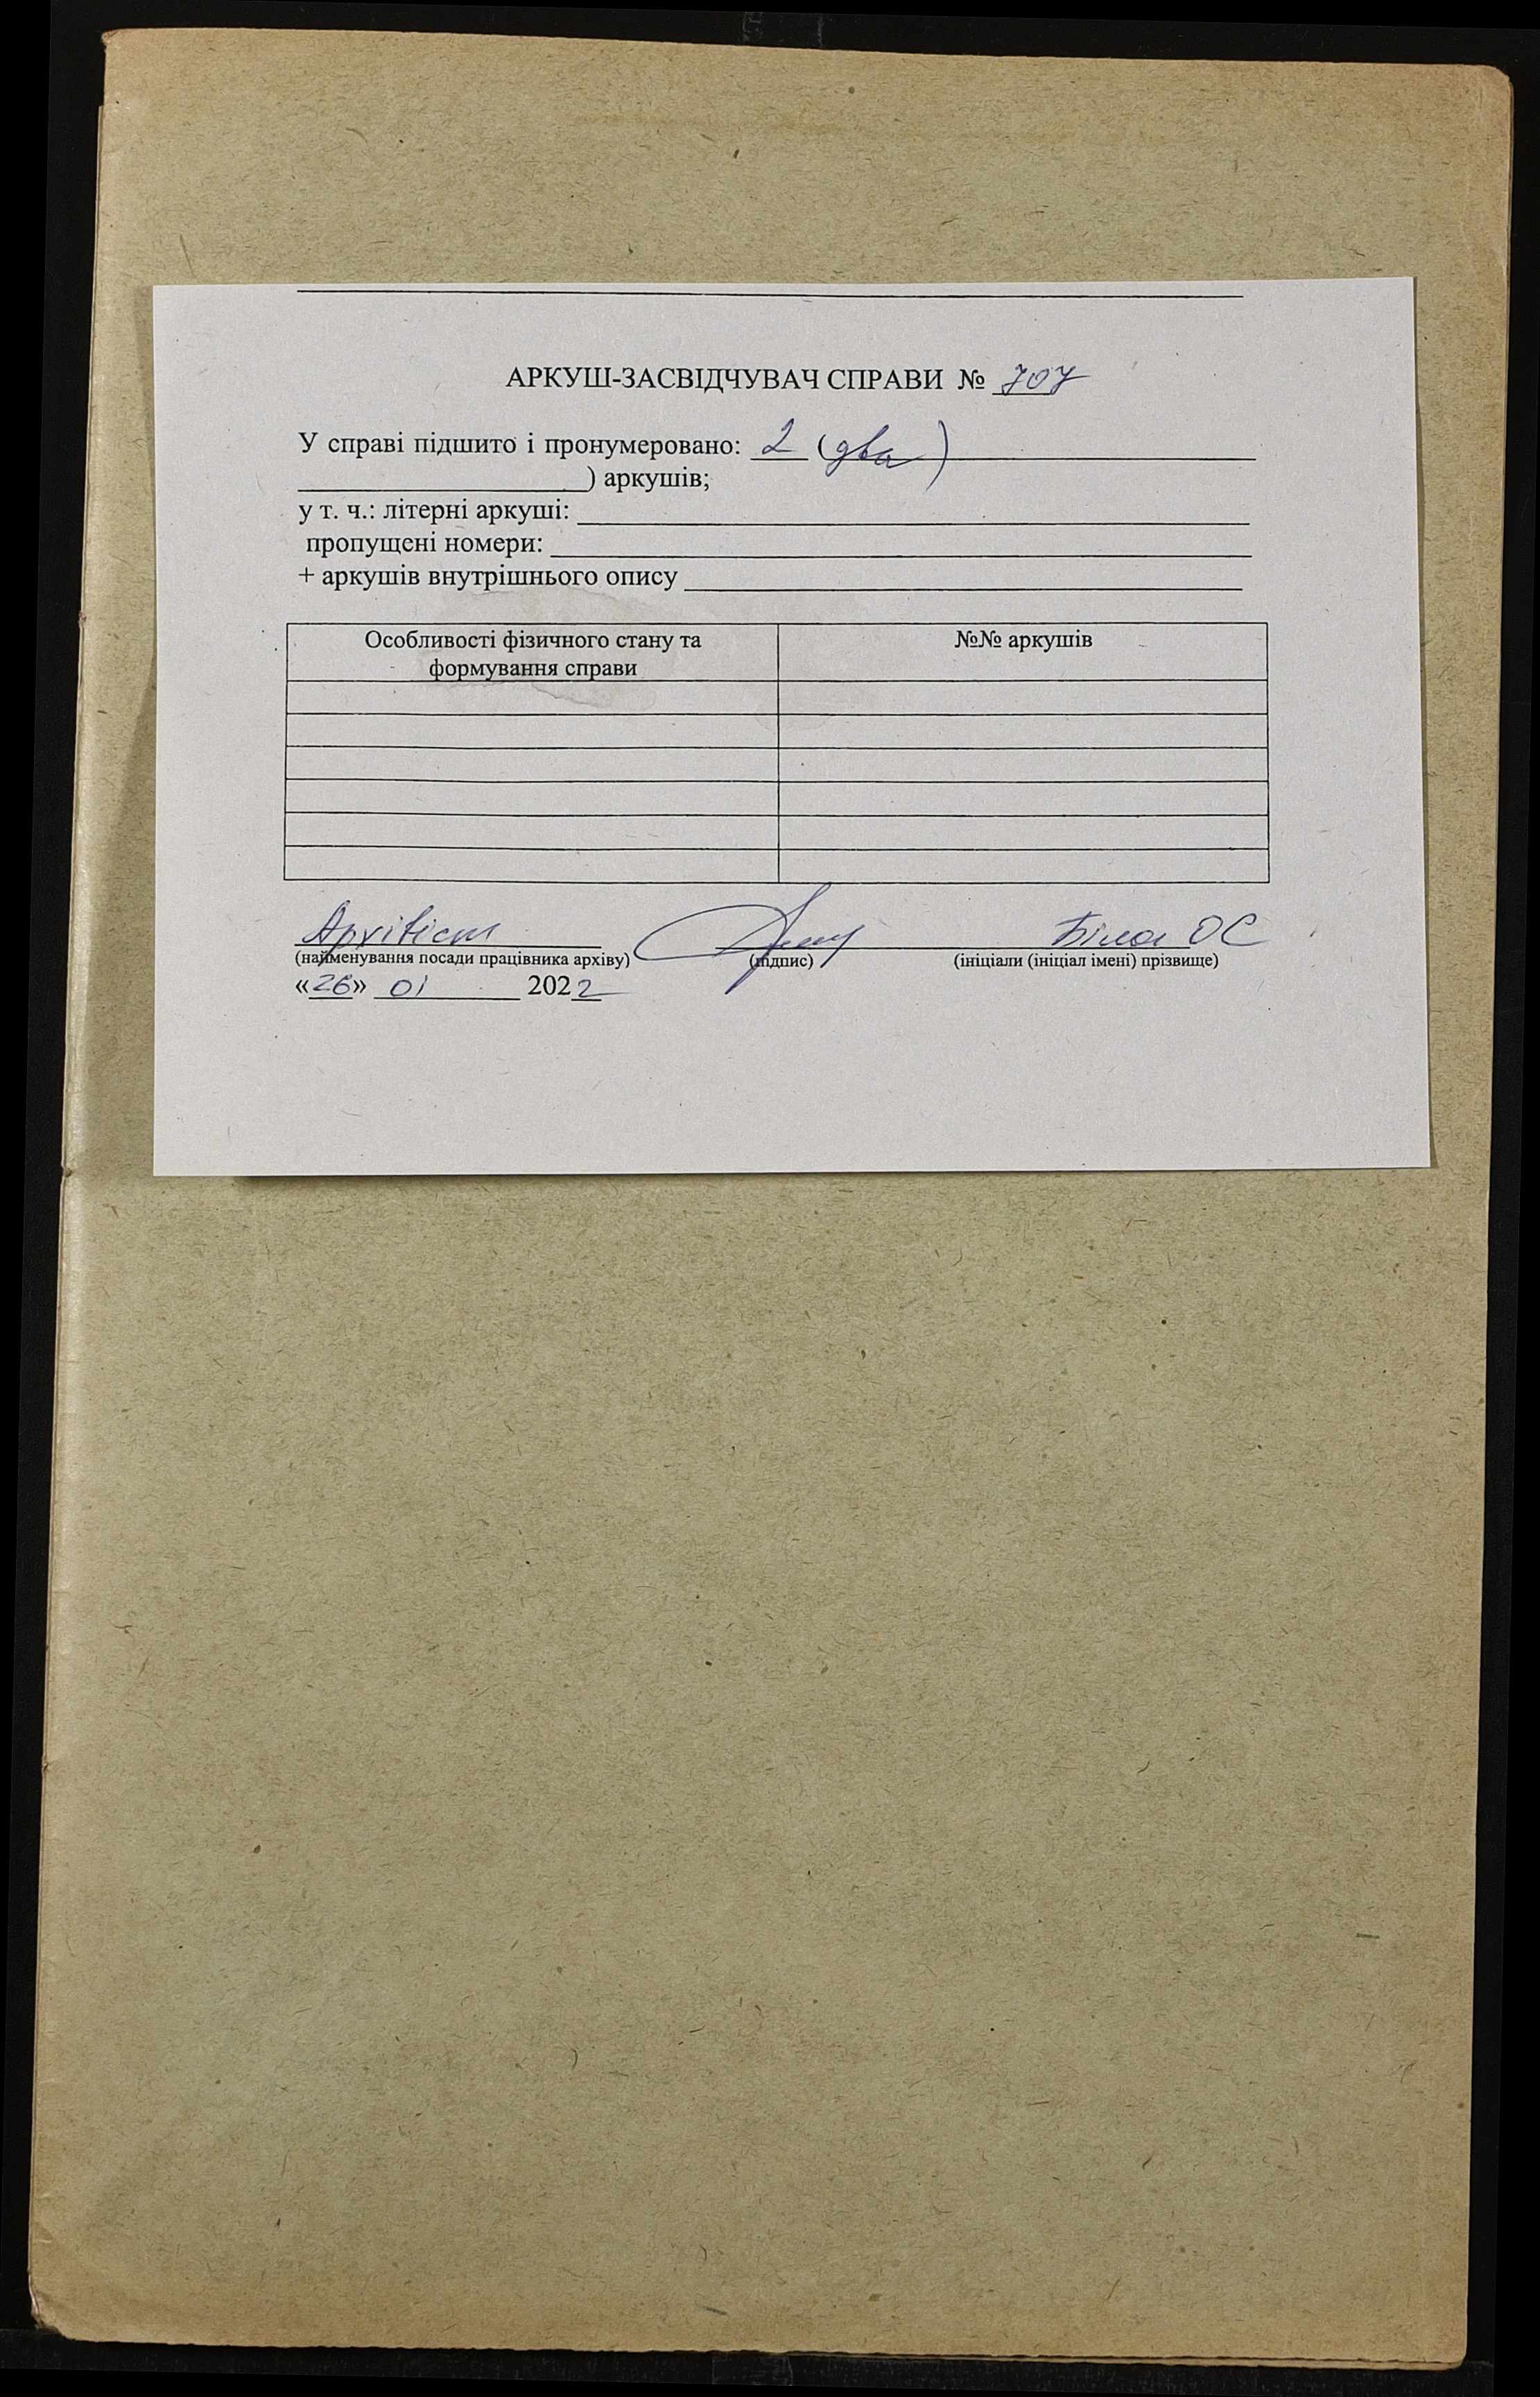 АРКУШ-ЗАСВІДЧУВАЧ СПРАВИ № 707
У справі підшито і пронумеровано: 2 (два)
) аркушів;
у т. ч.: літерні аркуші:
пропущені номери:
+ аркушів внутрішнього опису
Особливості фізичного стану та формування справи №№ аркушів
Архівіст Біла ОС
(найменування посади працівника архіву) (підпис) (ініціали (ініціал імені) прізвище)
«26» 01 2022